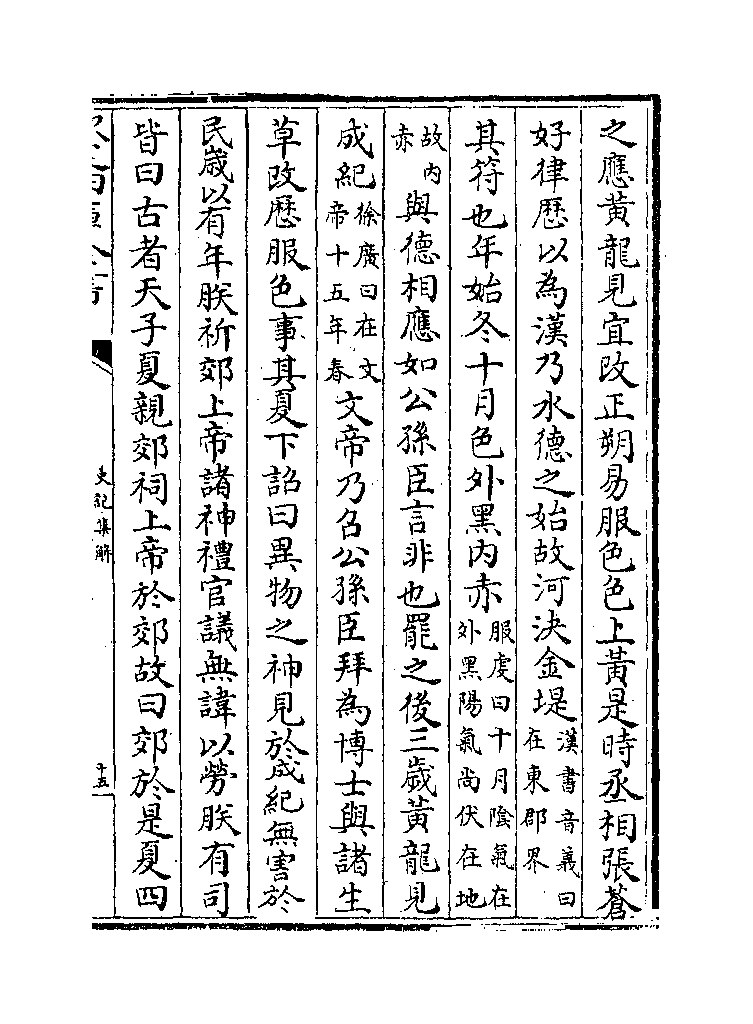 之應黃龍見宜改正朔易服色色上黃是時丞相張蒼
好律歴以為漢乃水德之始故河決金堤漢書音義曰在東郡界
其符也年始冬十月色外黑内赤服虔曰十月陰氣在外黑陽氣尚伏在地
故内赤與德相應如公孫臣言非也罷之後三歲黃龍見
成紀徐廣曰在文帝十五年春文帝乃召公孫臣拜為博士與諸生
草改歴服色事其夏下詔曰異物之神見於成紀無害於
民歲以有年朕祈郊上帝諸神禮官議無諱以勞朕有司
皆曰古者天子夏親郊祠上帝於郊故曰郊於是夏四
史記集解
十五